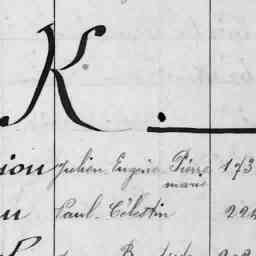 K.
ion Julien Eugène Pierre 173
marie
u Paul Célestin 224